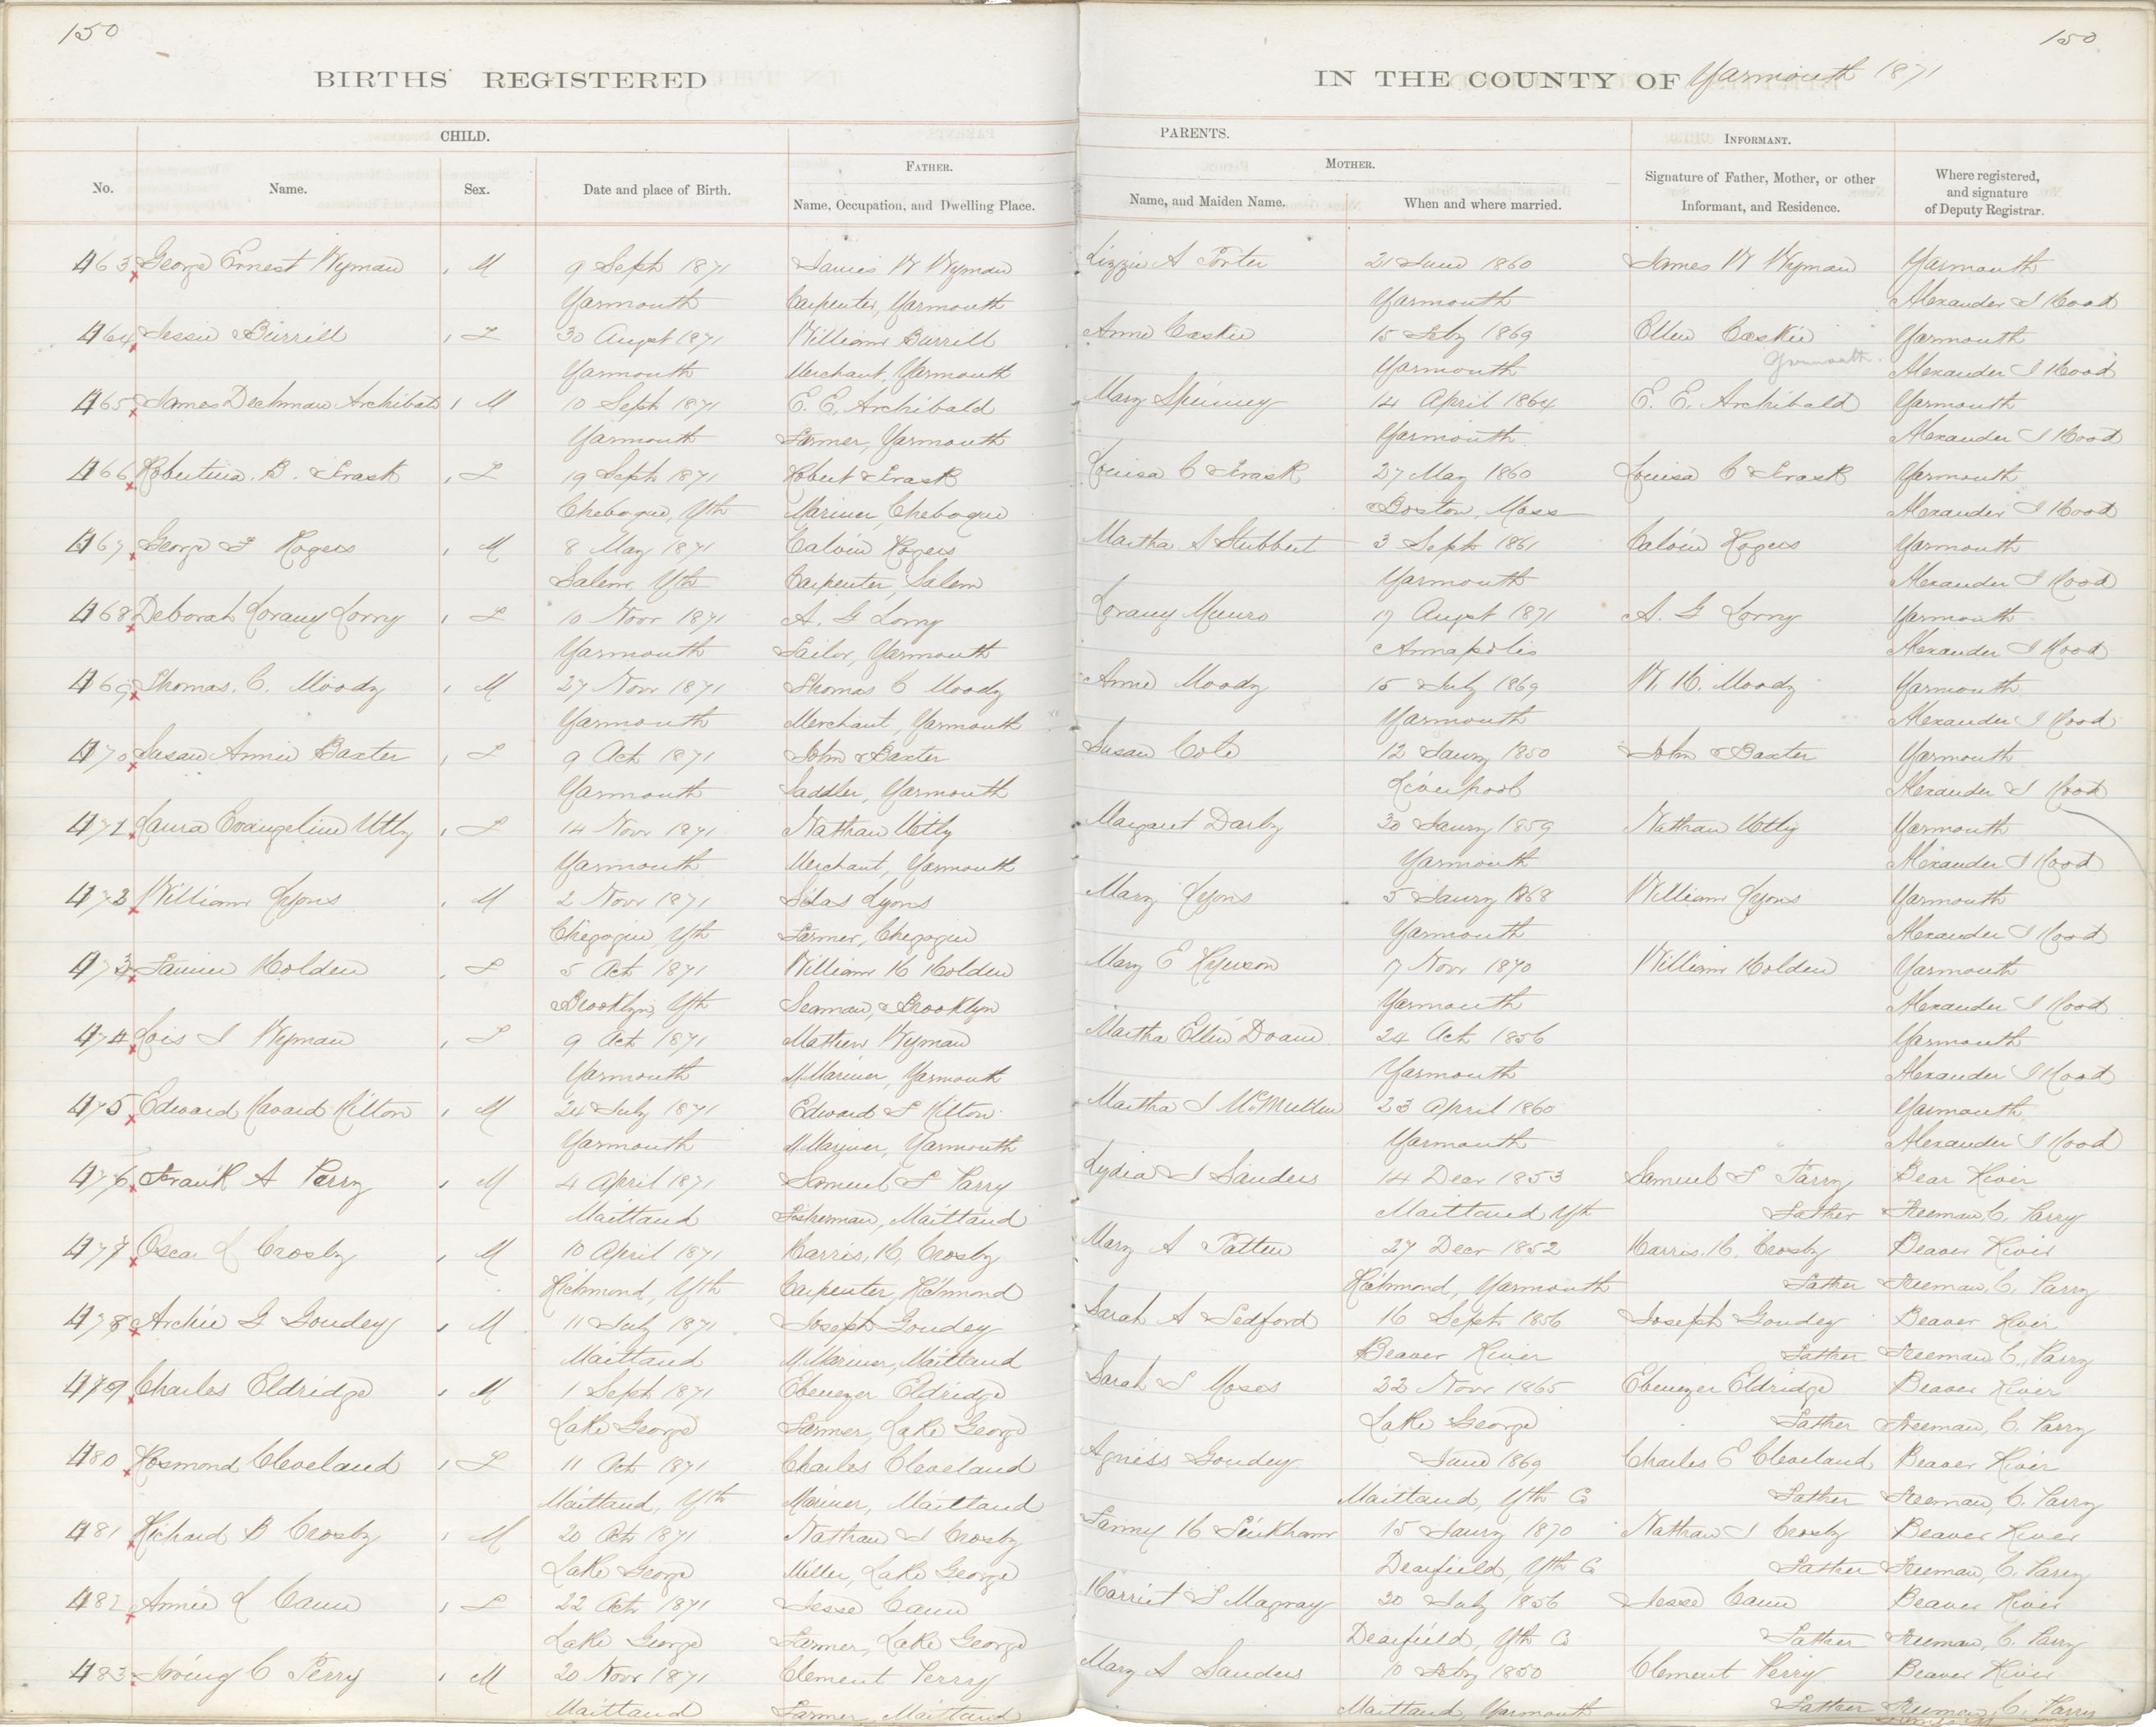 150
150
BIRTHS REGISTERED IN THE COUNTY OF Yarmouth 1871
CHILD. PARENTS. INFORMANT.
FATHER. MOTHER.
No. Name. Sex. Date and place of Birth. Name, Occupation, and Dwelling Place. Name, and Maiden Name. When and where married. Signature of Father, Mother, or other Informant, and Residence. Where registered, and signature of Deputy Registrar.
463 George Ernest Wyman M 9 Sept 1871 James W Wyman Lizzie A Porter 21 June 1860 James W Wyman Yarmouth
Yarmouth Carpenter, Yarmouth Yarmouth Alexander J Hood
464 Jessie Burrill F 30 August 1871 William Burrill Anne Caskie 15 Feby 1869 Ellen Caskie Yarmouth
Yarmouth Merchant, Yarmouth Yarmouth Yarmouth Alexander J Hood
465 James Deckman Archibald M 10 Sept 1871 E. E. Archibald Mary Spinney 14 April 1864 E. E. Archibald Yarmouth
Yarmouth Farmer, Yarmouth Yarmouth Alexander J Hood
466 Robertina. B. Trask F 19 Sept 1871 Robert Trask Louisa C Trask 27 May 1860 Louisa C Trask Yarmouth
Chebogue, Yth Mariner, Chebogue Boston, Mass Alexander J Hood
467 George F Rogers M 8 May 1871 Calvin Rogers Martha S Hibbert 3 Sept 1861 Calvin Rogers Yarmouth
Salem, Yth Carpenter, Salem Yarmouth Alexander J Hood
468 Deborah Lorany Lorry F 10 Novr 1871 A. G Lorry Lorany Munro 17 August 1871 A. G Lorry Yarmouth
Yarmouth Sailor, Yarmouth Annapolis Alexander J Hood
469 Thomas. C. Moody M 27 Novr 1871 Thomas C Moody Anne Moody 15 July 1869 W. H. Moody Yarmouth
Yarmouth Merchant, Yarmouth Yarmouth Alexander J Hood
470 Susan Annie Baxter F 9 Oct 1871 John Baxter Susan Cole 12 Janry 1850 John Baxter Yarmouth
Yarmouth Saddler, Yarmouth Liverpool Alexander J Hood
471 Laura Evangeline Utly F 14 Novr 1871 Nathan Utly Margaret Darby 30 Janry 1859 Nathan Utly Yarmouth
Yarmouth Merchant, Yarmouth Yarmouth Alexander J Hood
472 William Lyons M 2 Novr 1871 Silas Lyons Mary Lyons 5 Janry 1868 William Lyons Yarmouth
Chegogin, Yth Farmer, Chegogin Yarmouth Alexander J Hood
473 Holden F 5 Oct 1871 William H Holden Mary E 17 Novr 1870 William Holden Yarmouth
Brooklyn, Yth Seaman, Brooklyn Yarmouth Alexander J Hood
474 Lois J Wyman F 9 Oct 1871 Mathew Wyman Martha Ellen Doane 24 Oct 1856 Yarmouth
Yarmouth M. Mariner, Yarmouth Yarmouth Alexander J Hood
475 Edward Havard Hilton M 24 July 1871 Edward F Hilton Martha J McMullen 23 April 1860 Yarmouth
Yarmouth M. Mariner, Yarmouth Yarmouth Alexander J Hood
476 Frank A Perry M 4 April 1871 Samuel S Parry Lydia J Sanders 14 Decr 1853 Samuel S Parry Bear River
Maitland Fisherman, Maitland Maitland Yth Father Freeman, C. Parry
477 Oscar L Crosby M 10 April 1871 Harris, H, Crosby Mary A Patten 27 Decr 1852 Harris. H. Crosby Beaver River
Richmond, Yth Carpenter, Richmond Richmond, Yarmouth Father Freeman, C. Parry
478 Archie G Goudey M 11 July 1871 Joseph Goudey Sarah A Tedford 16 Sept 1856 Joseph Goudey Beaver River
Maitland M. Mariner, Maitland Beaver River Father Freeman C, Parry
479 Charles Eldridge M 1 Sept 1871 Ebenezer Eldridge Sarah S Moses 22 Novr 1865 Ebenezer Eldridge Beaver River
Lake George Farmer, Lake George Lake George Father Freeman, C. Parry
480 Rosmond Cleveland F 11 Oct 1871 Charles Cleveland Agness Goudey June 1869 Charles E Cleveland Beaver River
Maitland, Yth Mariner, Maitland Maitland, Yth Co Father Freeman, C. Parry
481 Richard B Crosby M 20 Oct 1871 Nathan J Crosby Fanny H Pinkham 15 Janry 1870 Nathan J Crosby Beaver River
Lake George Miller, Lake George Dearfield, Yth Co Father Freeman, C. Parry
482 Annie L Cann F 22 Oct 1871 Jesse Cann Harriet S Magray 20 July 1856 Jesse Cann Beaver River
Lake George Farmer, Lake George Dearfield, Yth Co Father Freeman, C. Parry
483 Irving C Perry M 20 Novr 1871 Clement Perry Mary A Sanders 10 Feby 1850 Clement Perry Beaver River
Maitland Farmer, Maitland Maitland, Yarmouth Father Freeman, C. Parry